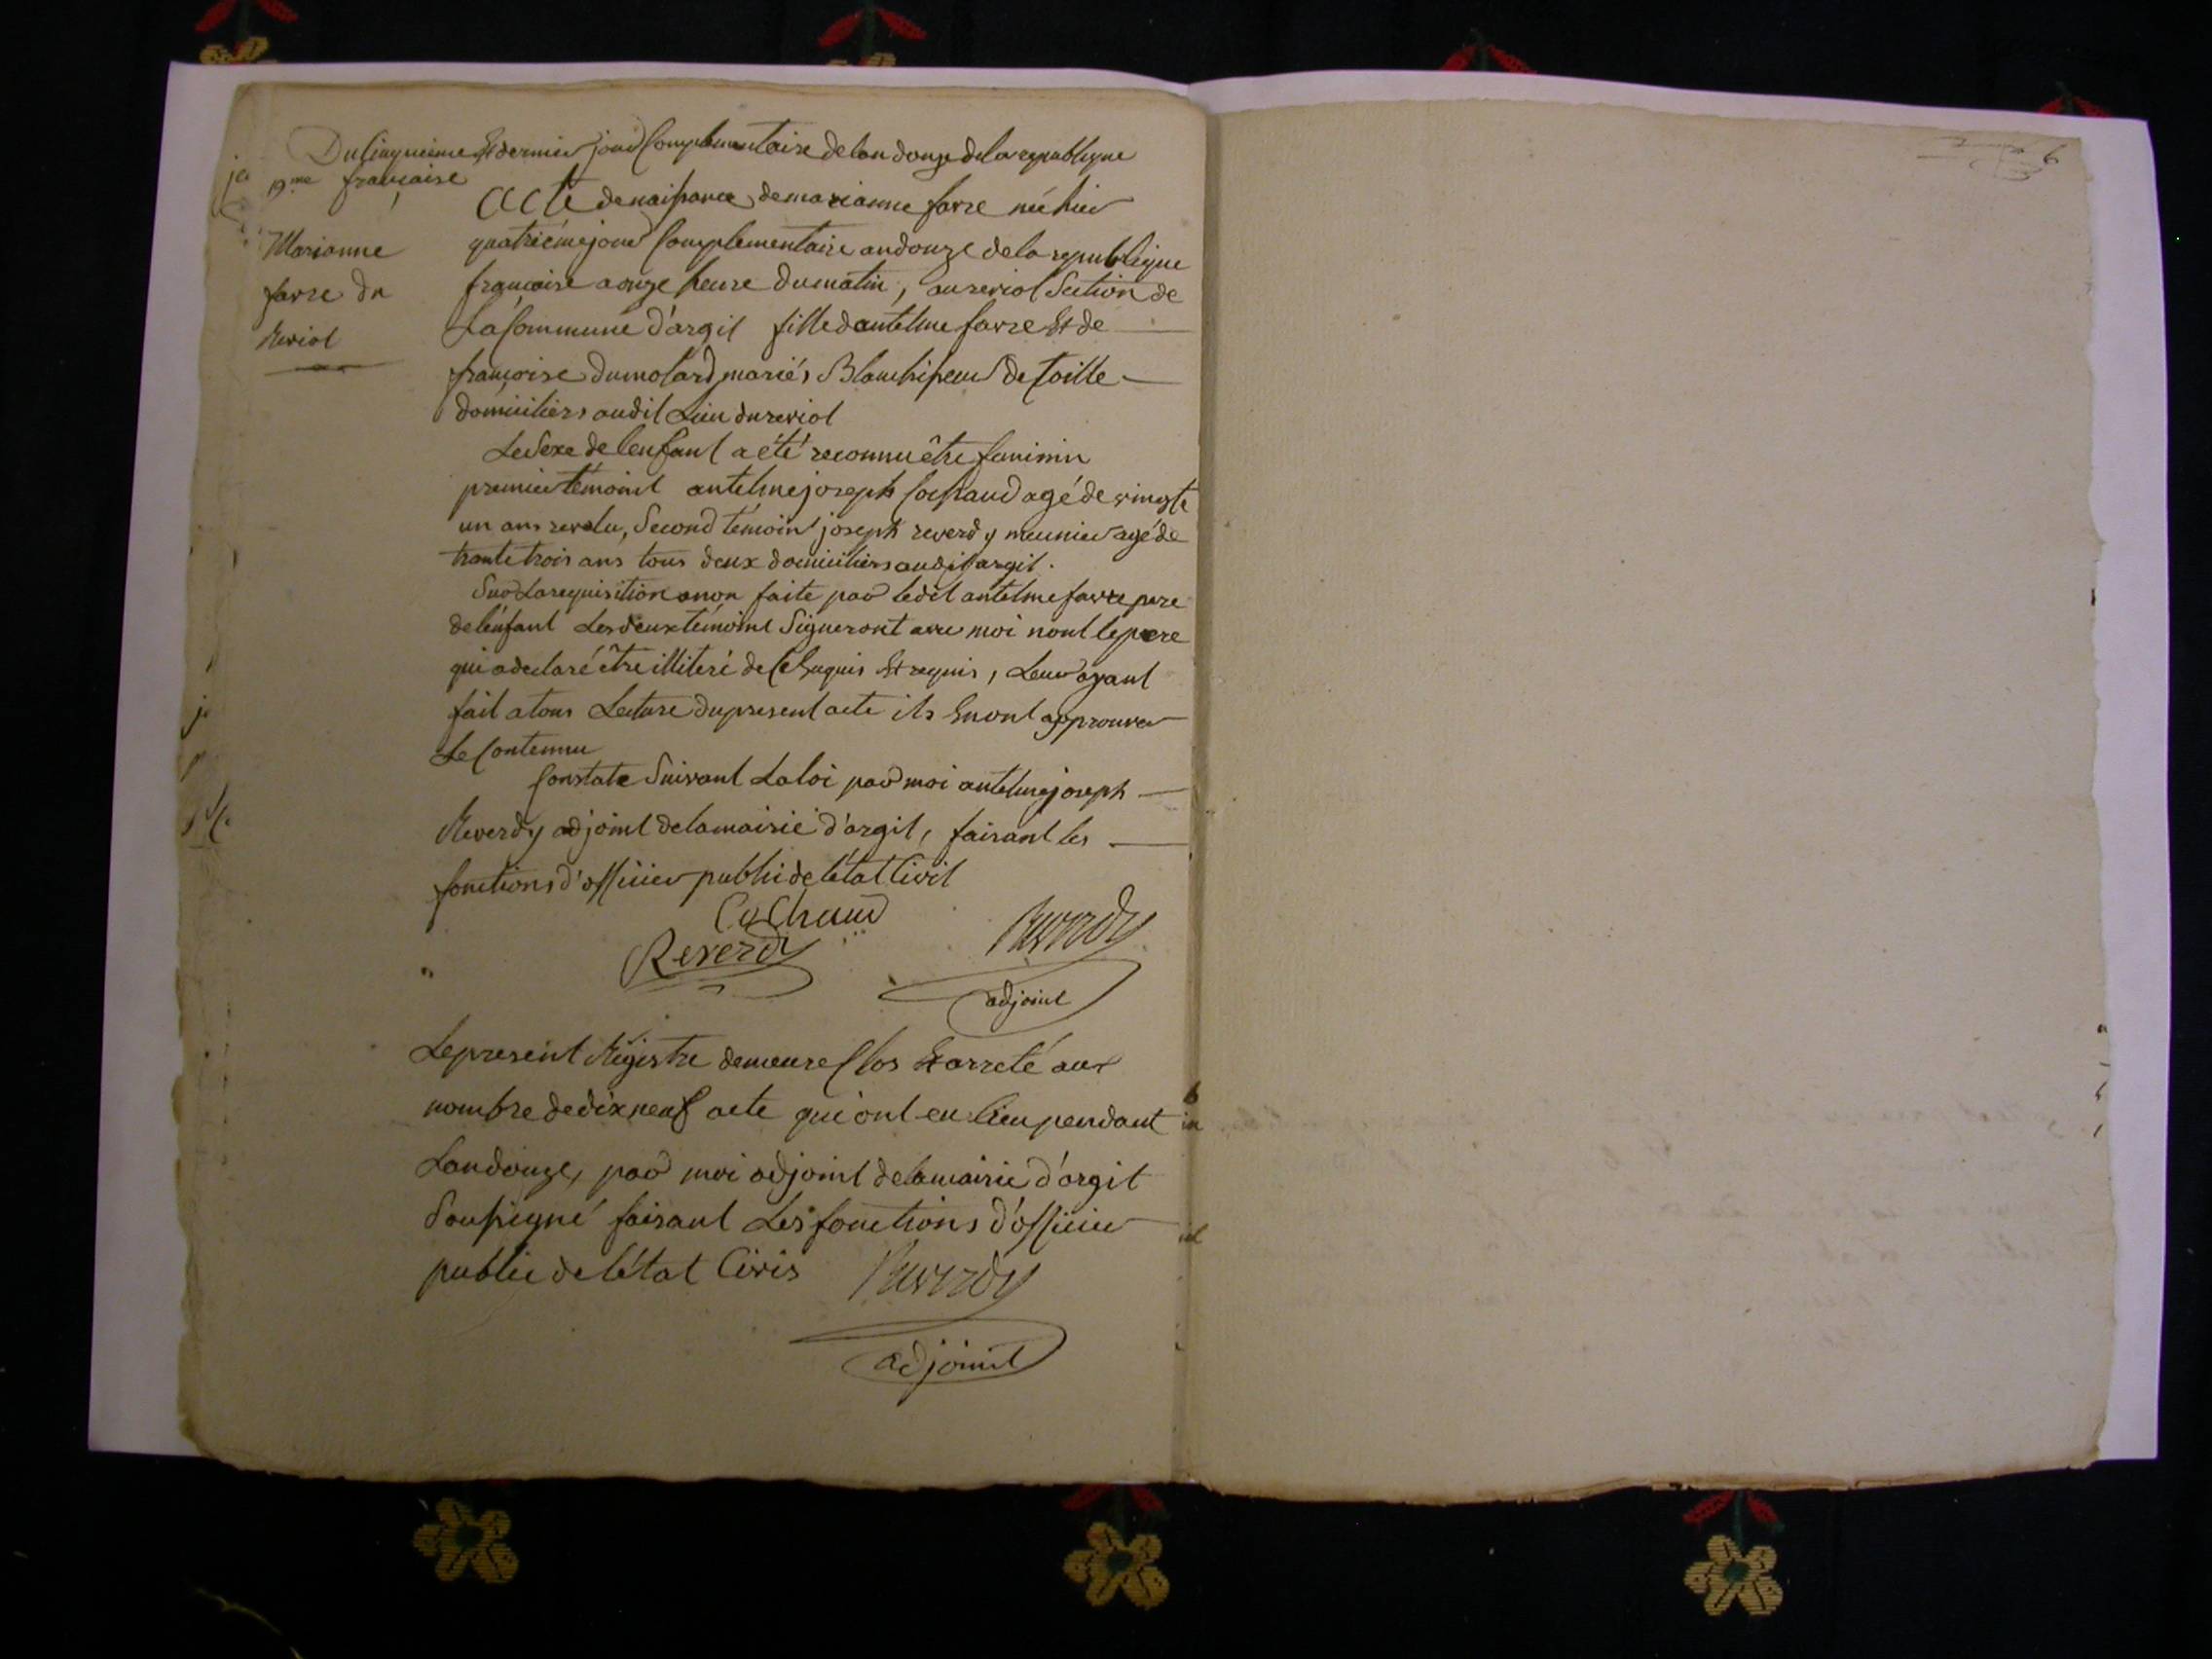 Du Cinquieme Et dernier jour Complementaire de lan douze de la republique
19.me française
Marianne
favre du
Reviol
Acte de naissance de marianne favre née hier
quatriéme jour Complementaire an douze de la republique
française a onze heure du matin, au reviol Section de
La Commune d'argil fille dantelme favre Et de
françoise dumolard mariés Blanchisseur de toille
domiciliers audit Lieu du reviol
Le Sexe de lenfant a été reconnu être feminin
premier témoint antelme joseph Cochaud agé de vingt
un ans revolu, Second témoin joseph reverdy meunier agé de
trante trois ans tous deux domiciliers audit argil.
Sur La requisition a non faite par ledit antelme favre pere
de lénfant Les deux témoint Signeront avec moi nont le pere
qui a declaré être illiteré de Ce Enquis Et requis, Leur ayant
fait a tous Lecture du present acte ils En ont approuver
Le Contenu
Constate Suivant La loi par moi antelme joseph
Reverdy adjoint de la mairie d'argil, faisant les
fonctions d'officier public de létat Civil
CoChaud
Reverdy
Reverdy
adjoint
Le present Régistre demeure Clos Et arreté aux
nombre de dix neuf acte qui ont eu lieu pendant
Lan douze, par moi adjoint de la mairie d'argil
Soussigné faisant Les fonctions d'officier
public de létat Civis
Reverdy
adjoint